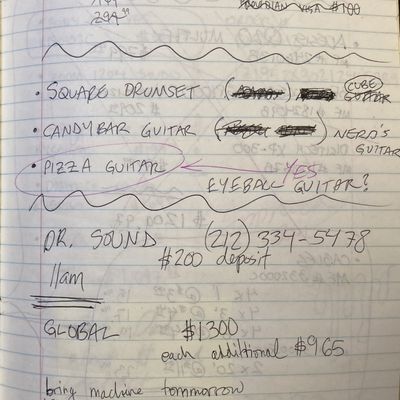 294
VISA $100
• SQUARE DRUMSET ( ) CUBE
GUITAR
• CANDYBAR GUITAR ( ) NERD'S
GUITAR
• PIZZA GUITAR YES
EYEBALL GUITAR?
DR. SOUND (212) 334-5478
$200 deposit
11am
GLOBAL $1300
each additional $965
bring machine tommorrow